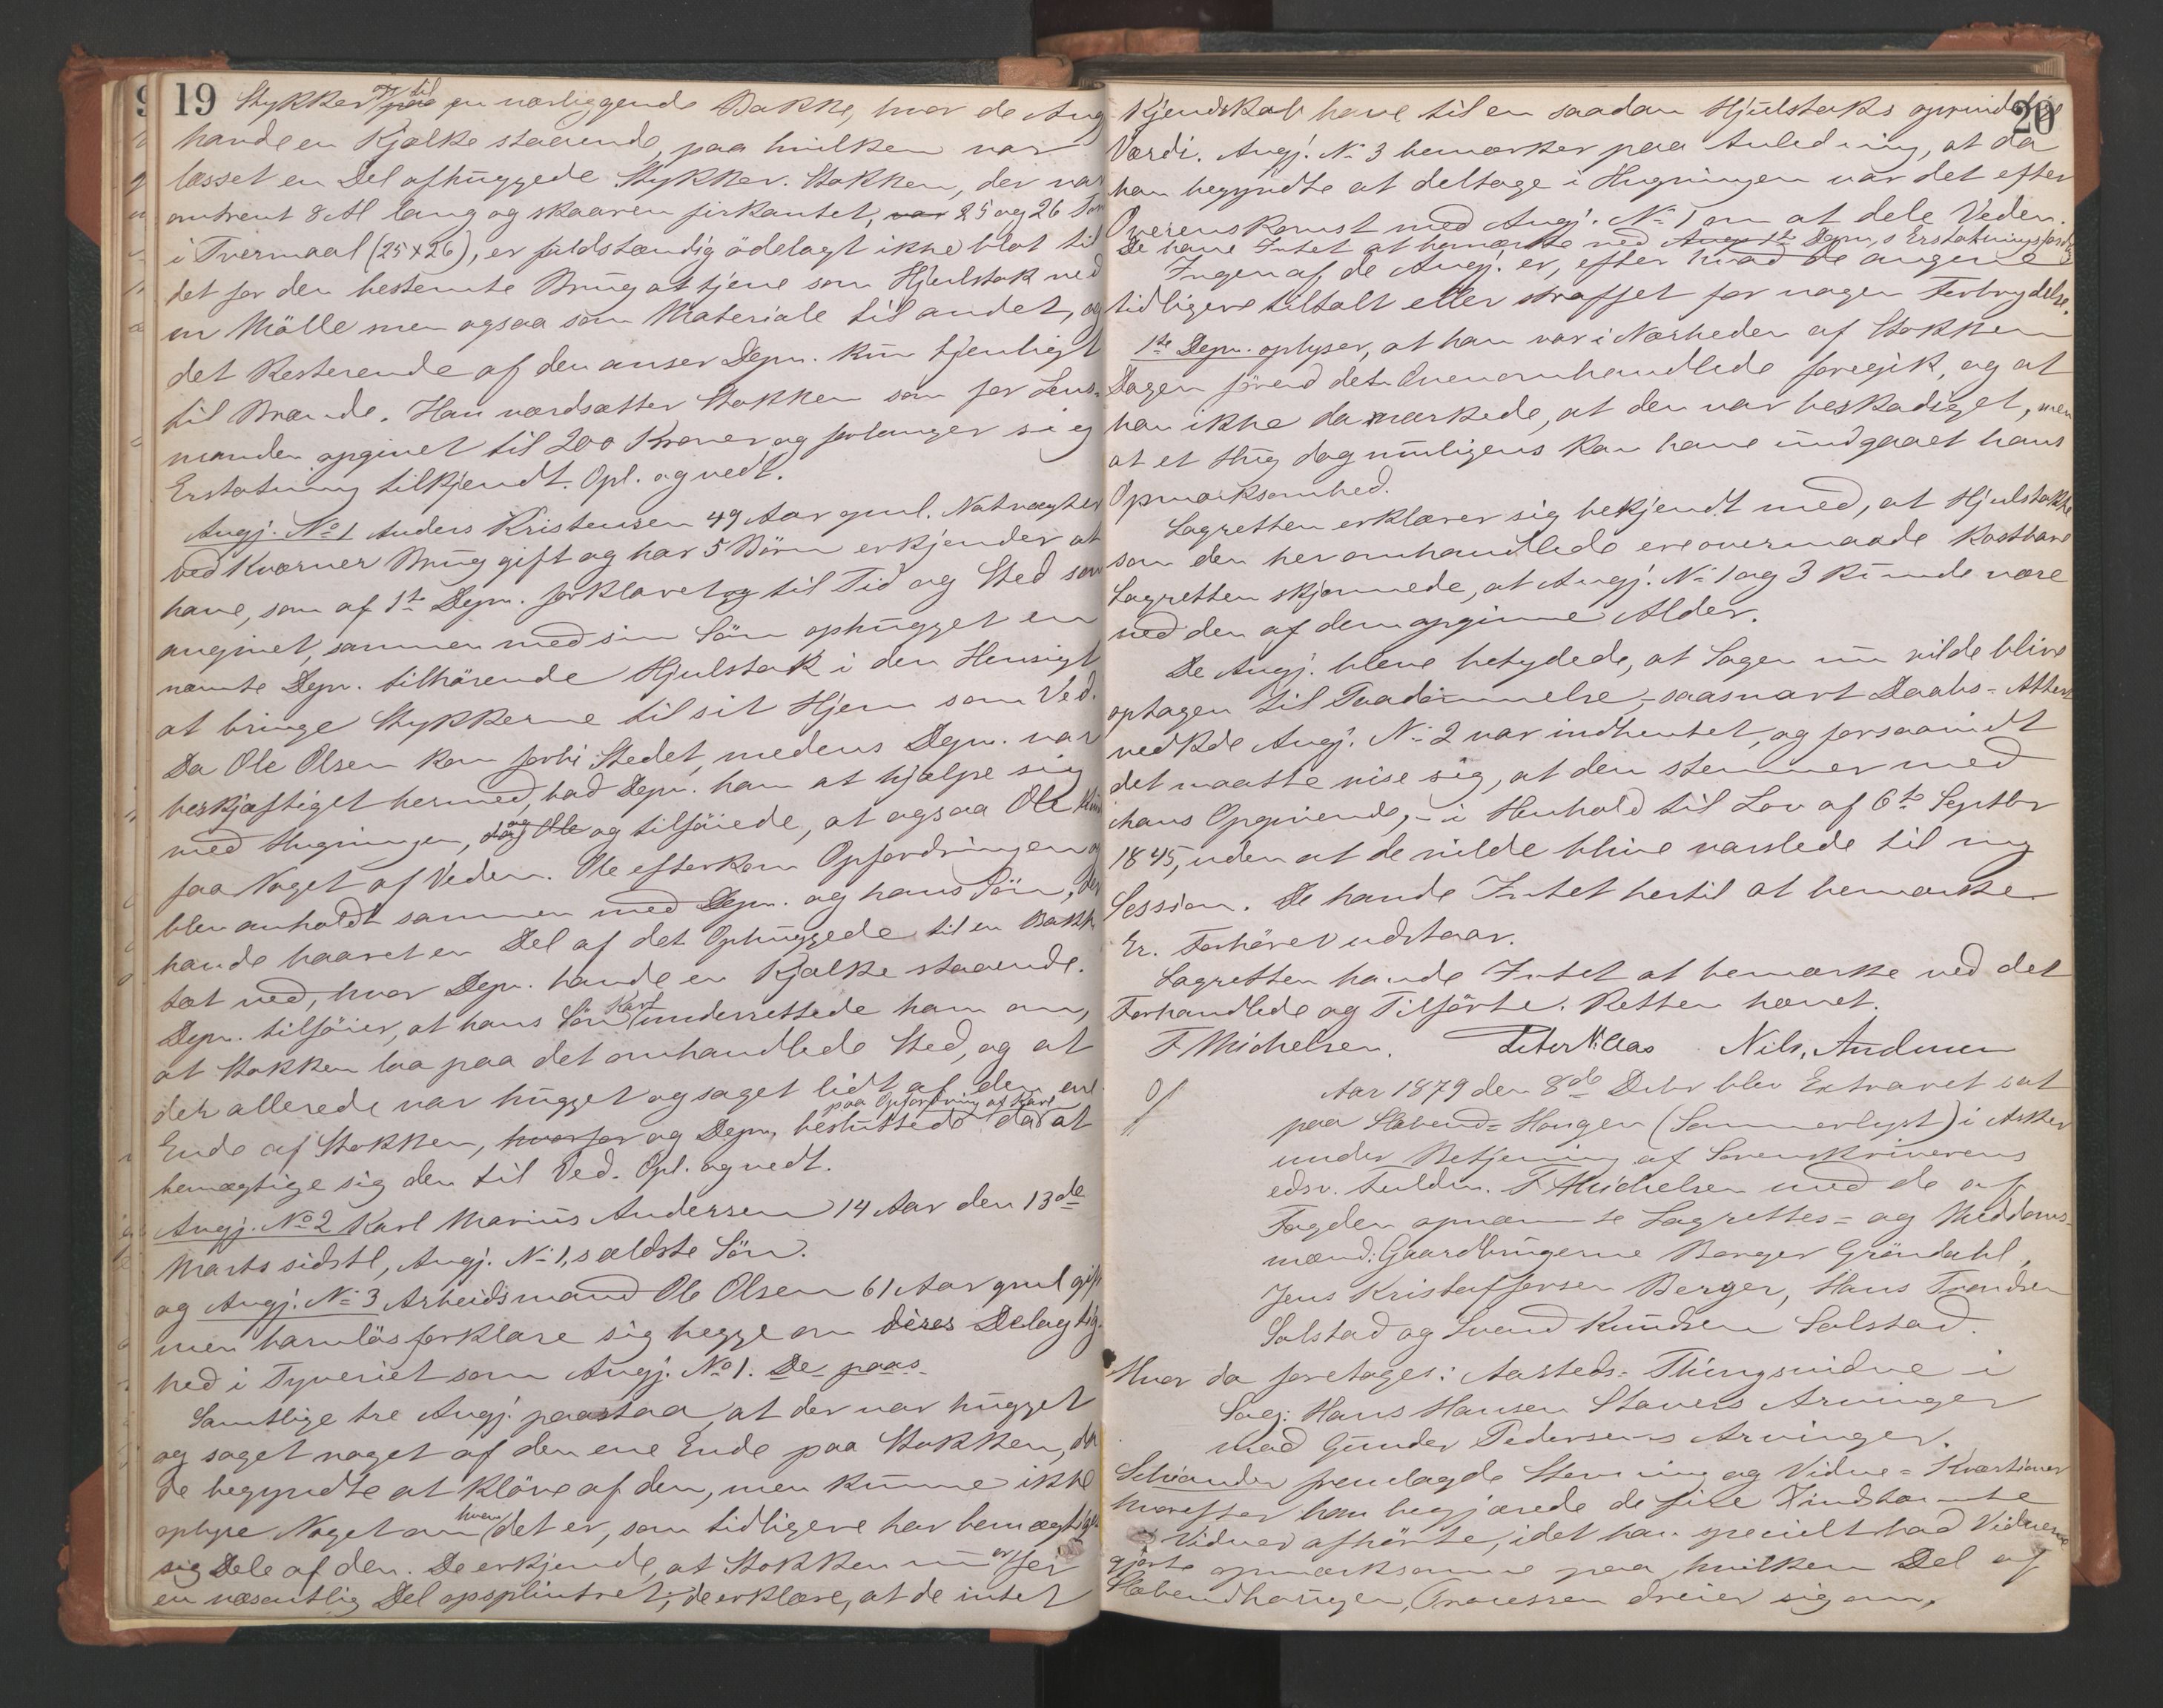 19
Stykker af til en nærliggende Bakke, hvor de Ang
havde en Kjælke staaende, paa hvilken var
læsset en Del afhuggede Stykker. Stokken, der var
omtrent 8 Al lang og skaaren firkantet, var 25 og 26 Tom
i Tvermaal (25 x 26), er fuldstændig ödelagt ikke blot til
det for den bestemte Brug at tjene som Hjulstok ved
en Mölle men ogsaa som Materiale til andet, og
det Resterende af den anser Depn. kun tjenligt
til Brænde. Han værdsætter Stokken som for Lens-
manden opgivet til 200 Kroner og forlanger sig
Erstatning tilkjendt. Opl. og vedt.
Angj. No 1 Anders Kristensen 49 Aar gml. Natvægter
ved Kværner Brug gift og har 5 Börn erkjender at
have, som af 1ste Depn. forklaret og til Tid og Sted som
angivet, sammen med sin Sön ophugget en
nævnte Depn. tilhörende Hjulstok i den Hensigt
at bringe Stykkerne til sit Hjem som Ved.
Da Ole Olsen kom forbi Stedet, medens Depn. var
beskjæftiget hermed, bad Depn. ham at hjælpe sig
med Hugningen, og Ole og tilföiede, at ogsaa Ole kun
faa Noget af Veden. Ole efterkom Opfordringen og
blev anholdt sammen med Depn. og hans Sön, der
havde baaret en Del af det Ophuggede til en Bakke
tæt ved, hvor Depn. havde en Kjælke staaende.
Depn. tilföier, at hans Sön Karl underrettede ham om,
at Stokken laa paa det omhandlede Sted, og at
der allerede var hugget og saget lidt af den ene
Ende af Stokken, hvorfor og Depn. besluttede paa Opfordring af Karl da at
bemægtige sig den til Ved. Opl. og vedt.
Angj. No 2 Karl Marius Andersen 14 Aar den 13de
Marts sidstl, Angj. No 1,s ældste Sön.
og Angj. No 3 Arbeidsmand Ole Olsen 61 Aar gml gift
men barnlös forklare sig begge om deres Delagtig-
hed i Tyveriet som Angj. No 1. De paas
Samtlige tre Angj. paastaa, at der var hugget
og saget noget af den ene Ende paa Stokken, da
de begyndte at klöve af den, men kunne ikke
oplyse Noget om hvem det er, som tidligere har bemægtiget
sig Dele af den. De erkjende, at Stokken nu er for
en væsentlig Del opsplintret; de erklære, at de intet
20
Kjendskab have til en saadan Hjulstoks oprindelige
Værdi. Angj. No 3 bemærker paa Anledning, at da
han begyndte at deltage i Hugningen var det efter
Overenskomst med Angj. No 1 om at dele Veden.
De have Intet at bemærke ved Angj 1ste Depn,s Erstatningsfordr
Ingen af de Angj. er, efter hvad de angive
tidligere tiltalt eller straffet for nogen Forbrydelse.
1ste Depn. oplyser, at han var i Nærheden af Stokken
Dagen förend det Ovenomhandlede foregik, og at
han ikke da mærkede, at den var beskadiget, men
at et Hug dog muligens kan have undgaaet hans
Opmærksomhed.
Lagretten erklærer sig bekjendt med, at Hjulstokke
som den her omhandlede ere overmaade kostbare
Lagretten skjönnede, at Angj. No 1 og 3 kunde være
ved den af dem opgivne Alder.
De Angj. bleve betydede, at Sagen nu vilde blive
optagen til Paadömmelse, saasnart Daabs-Attest
vedkde Angj. No 2 var indhentet, og forsaavidt
det maatte vise sig, at den stemmer med
hans Opgivende, - i Henhold til Lov af 6te Septbr
1845, uden at de vilde blive varslede til ny
Session. De havde Intet hertil at bemærke
Er. Forhöret udstaar.
Lagretten havde Intet at bemærke ved det
Forhandlede og Tilförte. Retten hævet.
F Michelsen. Nils, Andersen
Aar 1879 den 8de Debr blev Extraret sat
paa Slabend-Haugen (Sommerlyst) i Asker
under Betjening af Sorenskriverens
edsv. Fuldm. F Michelsen med de af
Fogden opnævnte Lagrettes- og Meddoms-
mænd: Gaardbrugerne Berger Gröndahl,
Jens Kristoffersen Berger, Hans Trondsen
Solstad og Svend Knudsen Solstad.
Hvor da foretages: Aasteds-Thingsvidne i
Sag: Hans Hansen Stavers Arvinger
mod Gunder Pedersens Arvinger.
Schiander fremlagde Stevning og Vidne-Kvæstioner
hvorefter han begjærede de fire Indstævnte
Vidner afhörte, idet han specielt bad Vidnerne
gjorte opmærksomme paa, hvilken Del af
Slabendhaugen, Processen dreier sig om,